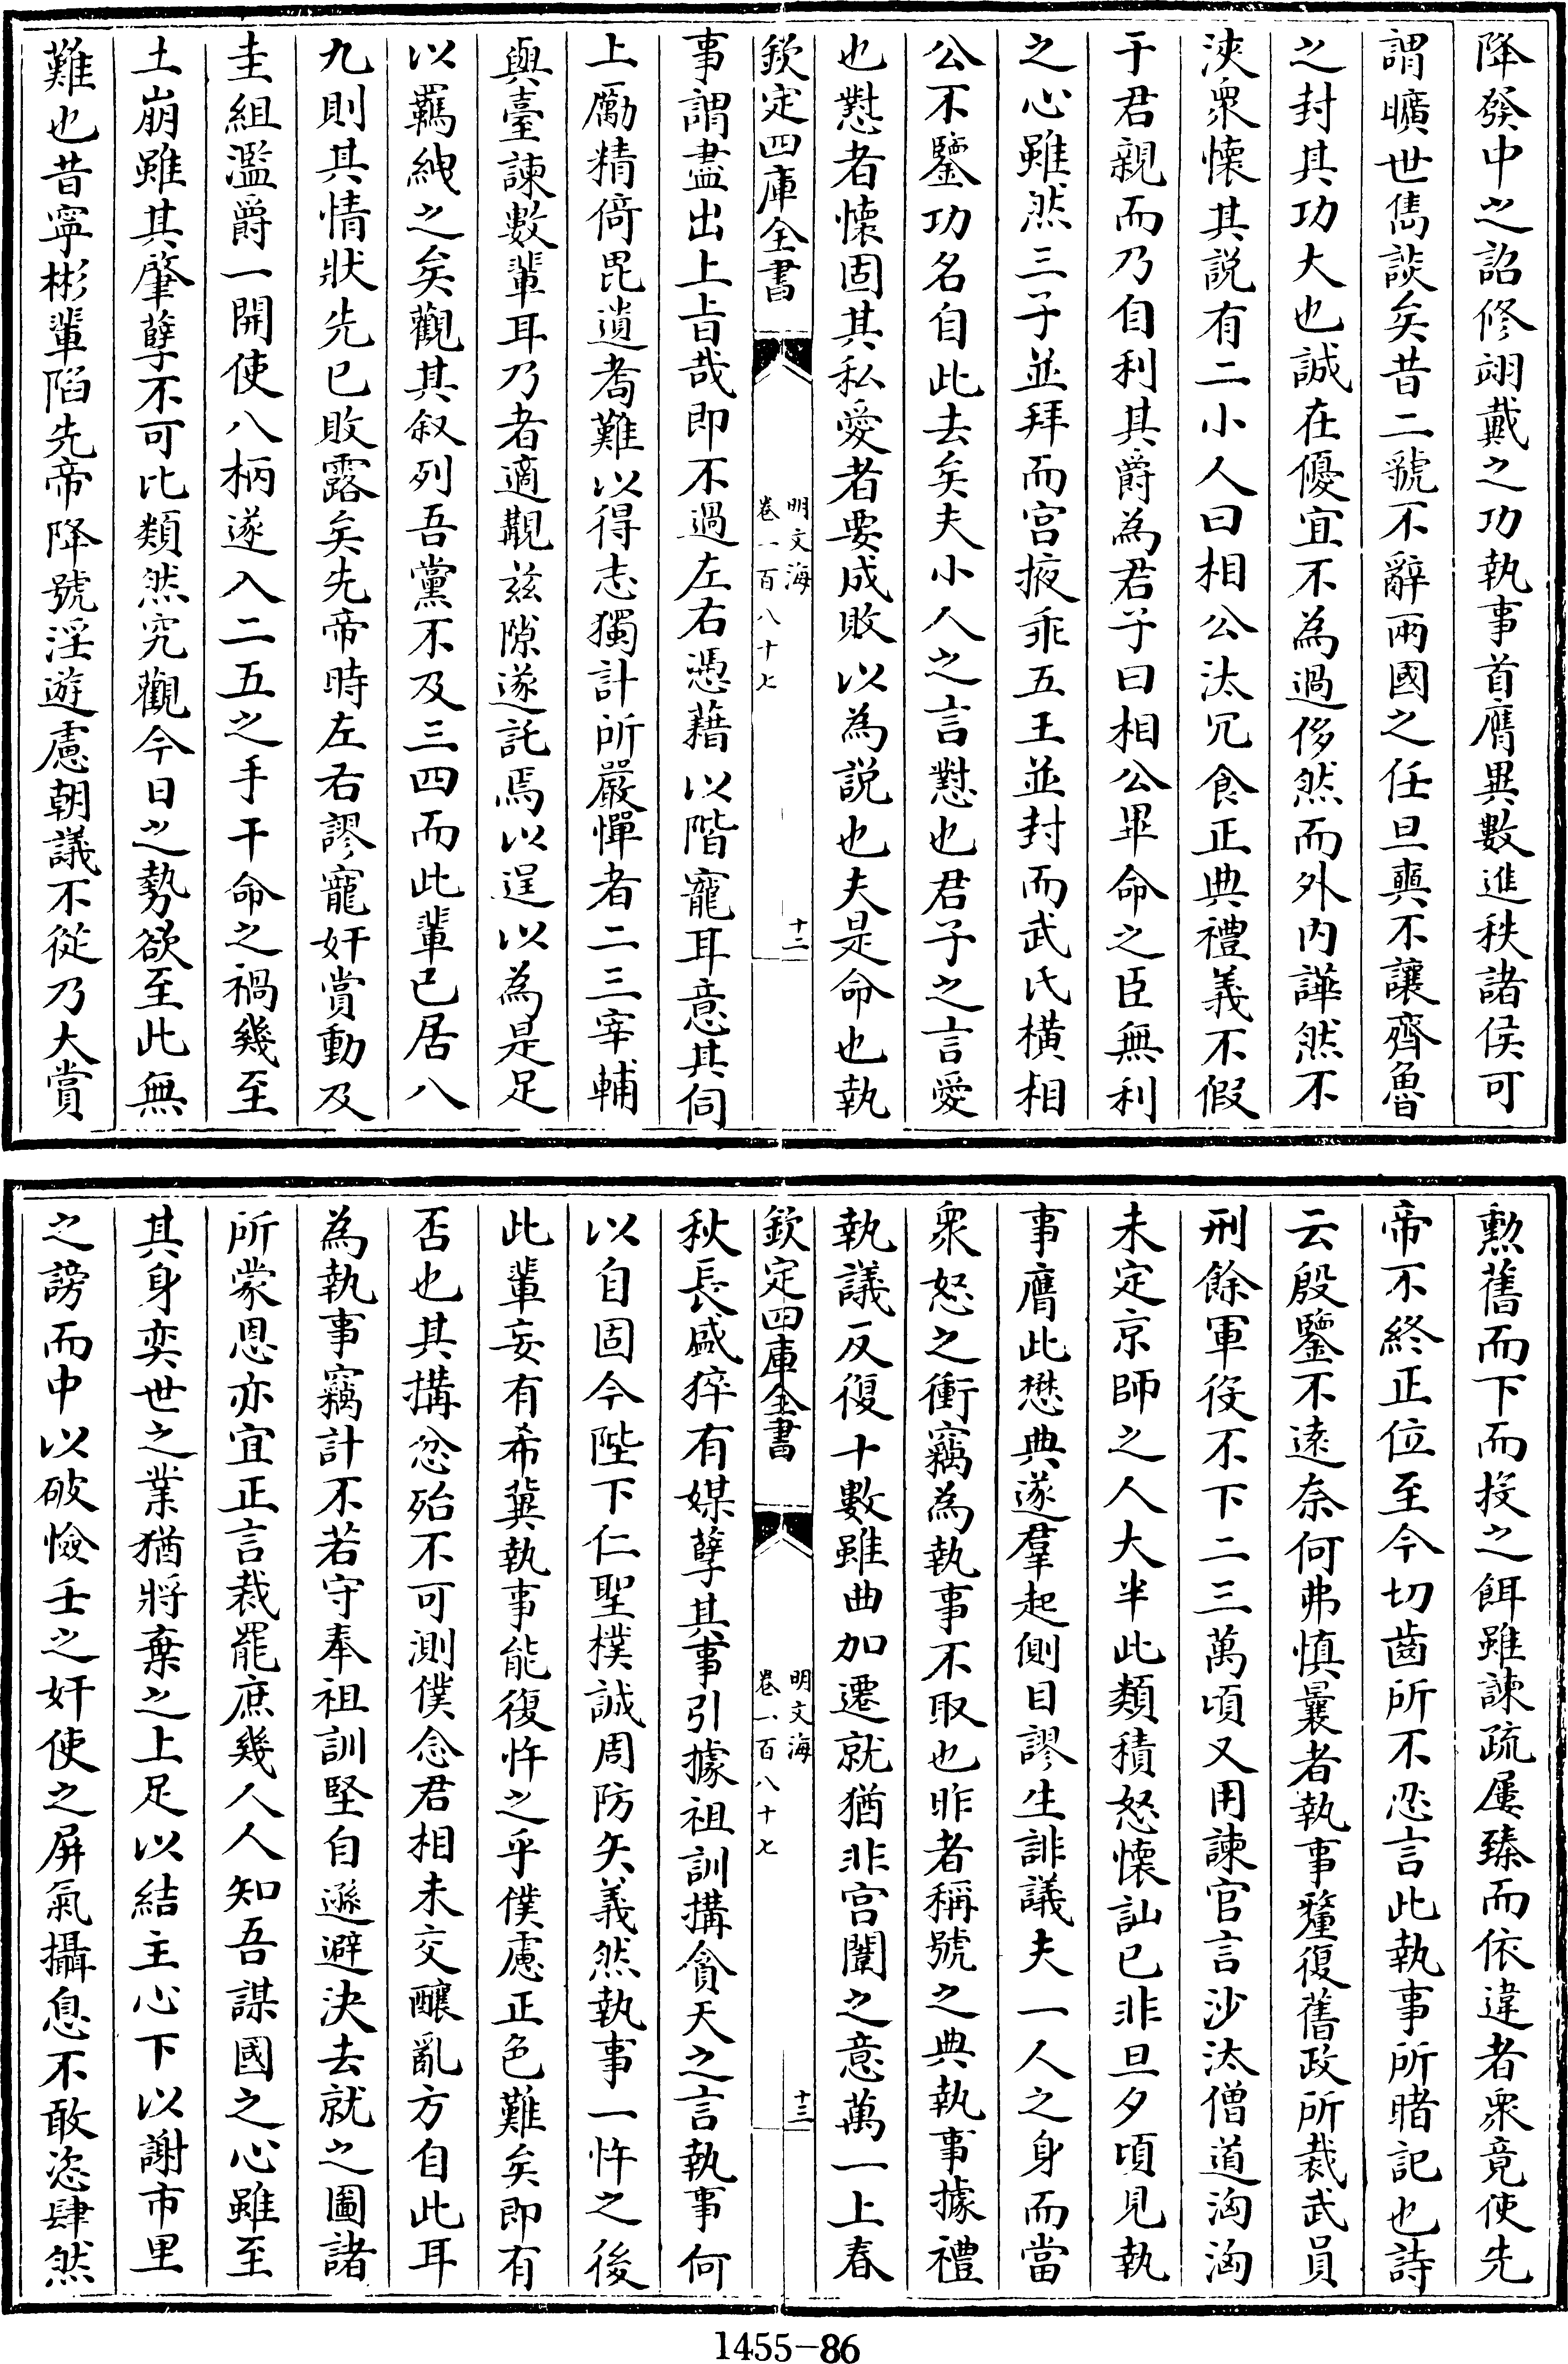 降發中之詔修翊戴之功執事首膺異數進秩諸侯可
謂曠世雋談矣昔二虢不辭兩國之任旦奭不讓齊魯
之封其功大也誠在優宜不為過侈然而外内譁然不
浹衆懷其説有二小人曰相公汰冗食正典禮義不假
于君親而乃自利其爵為君子曰相公畢命之臣無利
之心雖然三子並拜而宫掖乖五王並封而武氏横相
公不鑒功名自此去矣夫小人之言懟也君子之言愛
也懟者懷固其私愛者要成敗以為説也夫是命也執
欽定四庫全書
明文海
卷一百八十七
十二
事謂盡出上㫖哉即不過左右憑藉以階寵耳意其伺
上勵精倚毘遺耉難以得志獨計所嚴憚者二三宰輔
與臺諫數輩耳乃者適覯兹隙遂託焉以逞以為是足
以羈絏之矣觀其叙列吾黨不及三四而此輩已居八
九則其情狀先已敗露矣先帝時左右謬寵奸賞動及
圭組濫爵一開使八柄遂入二五之手干命之禍幾至
土崩雖其肇孽不可比類然究觀今日之勢欲至此無
難也昔寧彬輩陷先帝降號淫遊慮朝議不從乃大賞
勲舊而下而投之餌雖諫疏屢臻而依違者衆竟使先
帝不終正位至今切齒所不忍言此執事所睹記也詩
云殷鑒不逺奈何弗慎曩者執事釐復舊政所裁武員
刑餘軍役不下二三萬頃又用諫官言沙汰僧道洶洶
未定京師之人大半此類積怒懷訕已非旦夕頃見執
事膺此懋典遂羣起側目謬生誹議夫一人之身而當
衆怒之衝竊為執事不取也昨者稱號之典執事據禮
執議反復十數雖曲加遷就猶非宫闈之意萬一上春
欽定四庫全書
明文海
卷一百八十七
十三
秋長盛猝有媒孽其事引據祖訓搆貪天之言執事何
以自固今陛下仁聖樸誠周防矢義然執事一忤之後
此輩妄有希冀執事能復忤之乎僕慮正色難矣即有
否也其搆忿殆不可測僕念君相未交釀亂方自此耳
為執事竊計不若守奉祖訓堅自遜避決去就之圖諸
所蒙恩亦宜正言裁罷庶幾人人知吾謀國之心雖至
其身奕世之業猶將棄之上足以結主心下以謝市里
之謗而中以破憸壬之奸使之屏氣攝息不敢恣肆然
1455-86